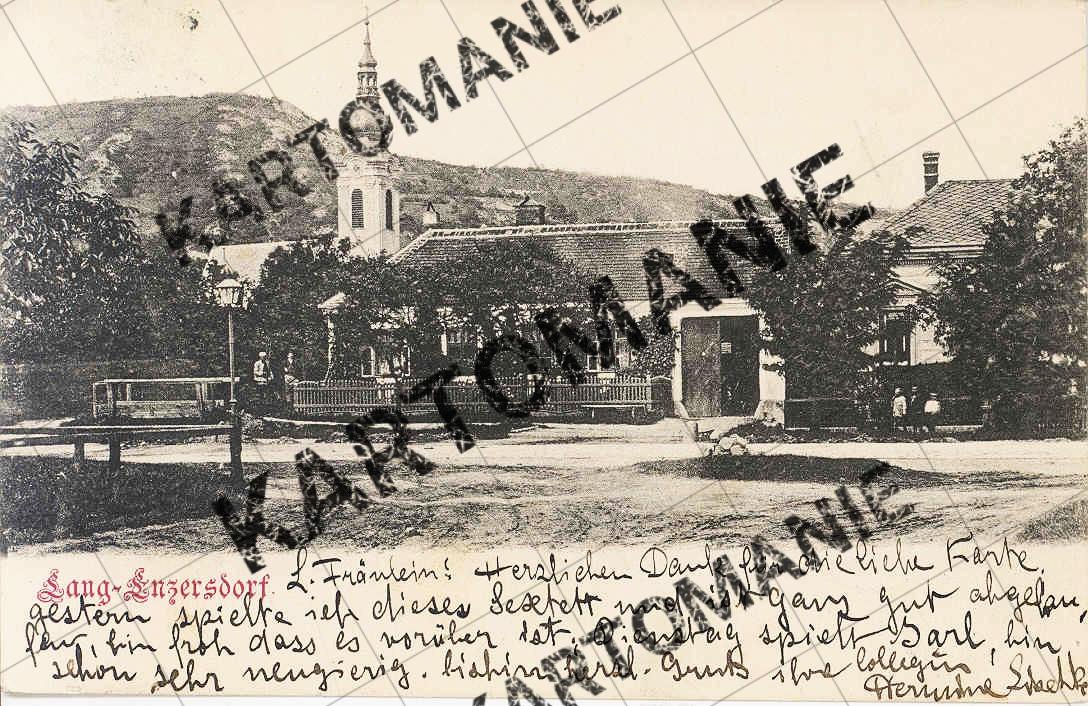 KARTOMANIE
KARTOMANIE
KARTOMANIE
KARTOMANIE
Lang-Enzersdorf.
L. Fräulein! Herzlichen Dank für die liebe Karte.
gestern spielte ich dieses Sextett und ist ganz gut abgelau,
fen, bin froh dass es vorüber ist, Dienstag spielt Carl, bin
schon sehr neugierig. bishin herzl. Gruß ihre Collegin
Hermine